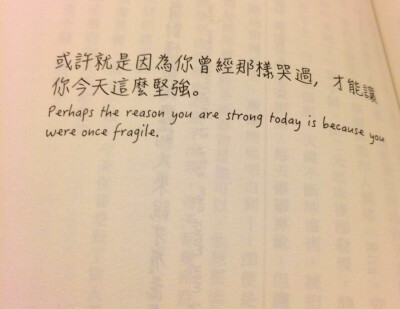 或許就是因為你曾經那樣哭過，才能讓
你今天這麼堅強。
Perhaps the reason you are strong today is because you
were once fragile.